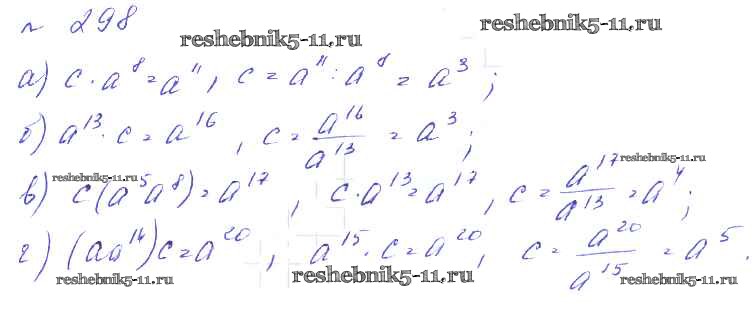 № 298
reshebnik5-11.ru
reshebnik5-11.ru
а) c · a⁸ = a¹¹, c = a¹¹ : a⁸ = a³;
б) a¹³ · c = a¹⁶, c = a¹⁶/a¹³ = a³;
reshebnik5-11.ru
reshebnik5-11.ru
в) c(a⁵a⁸) = a¹⁷, c · a¹³ = a¹⁷, c = a¹⁷/a¹³ = a⁴;
г) (aa¹⁴)c = a²⁰, a¹⁵ · c = a²⁰, c = a²⁰/a¹⁵ = a⁵.
reshebnik5-11.ru
reshebnik5-11.ru
reshebnik5-11.ru